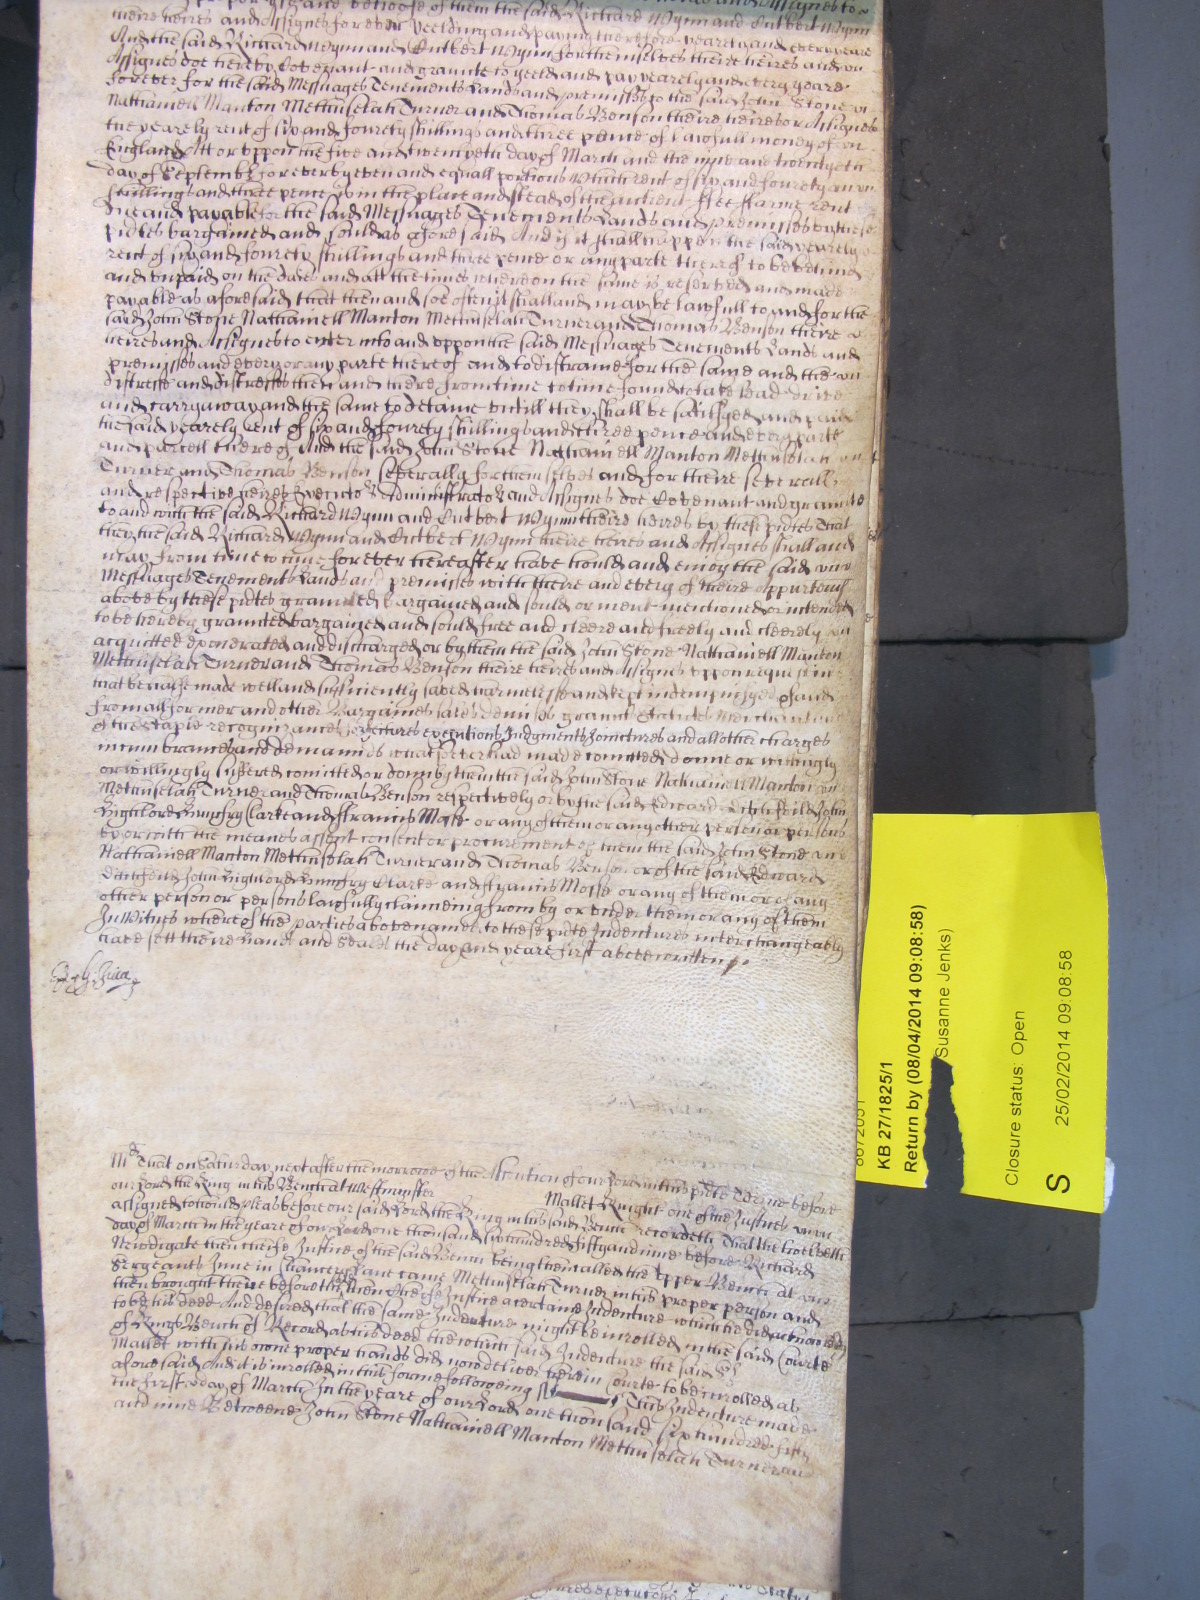 theire heires and Assignes for ever yeelding and paying therefore yearely and every yeare
And the said Richard Wynn and Cutbert Wynn for themselves theire heires and
Assignes doe hereby Covenant and graunte to yeeld and pay yearely and every yeare
forever for the said Messuages Tenements Lands and premisses to the said John Stone
Nathaniell Manton Methuselah Turner and Thomas Benson theire heires or Assignes
the yearely rent of six and fourety shillings and three pence of lawfull money of
England Att or uppon the five and twentyeth day of March and the nyne and twentyeth
day of September for ever by even and equall portions which rent of six and fourety
shillings and three pence is in the place and stead of the antient ffee ffarme rent
due and payable for the said Messuages Tenements Lands and premisses by these
pntes bargained and sould as aforesaid And if it shall happen the said yearely
rent of six and fourety shillings and three pence or any parte thereof to be behind
and unpaid on the daies and att the times whereon the same is reserved and made
payable as aforesaid that then and soe often it shall and may be lawfull to and for the
said John Stone Nathaniell Manton Methuselah Turner and Thomas Benson theire
heires and Assignes to enter into and uppon the said Messuages Tenements Lands and
premisses and every or any parte thereof and to distraine for the same and the
distresse and distresses then and there from time to time found to take lead drive
and carry away and the same to detaine untill they shall be satisfyed and paid
the said yearely Rent of six and fourety shillings and three pence and every parte
and parcell thereof And the said John Stone Nathaniell Manton Methuselah
Turner and Thomas Benson severally for themselves and for theire severall
and respective heires Executors Administrators and Assignes doe Covenant and graunte
to and with the said Richard Wynn and Cutbert Wynn theire heires by these pntes That
they the said Richard Wynn and Cutbert Wynn theire heires and Assignes shall and
may from time to time forever hereafter have hould and enjoy the said
Messuages Tenements Lands and premisses with theire and every of theire appurtenn
above by these pntes graunted bargained and sould or ment mentioned or intended
to be hereby graunted bargained and sould free and cleere and freely and cleerely
acquitted exonerated and discharged or by them the said John Stone Nathaniell Manton
Methuselah Turner and Thomas Benson theire heires and Assignes uppon request
that behalfe made well and sufficiently saved harmelesse and kept indempnifyed of and
from all former and other Bargaines sales demises graunts Statutes Merchant
of the staple recognizances forfeitures executions Judgments Joyntures and all other charges
incumbrances and demannds whatsoever had made comitted donne or wittingly
or willingly suffered comitted or donne by them the said John Stone Nathaniell Manton
Methuselah Turner and Thomas Benson respectively or by the said Edward Ditchfeild John
Highlord Humfry Clarke and ffrancis Mosse or any of them or any other person or persons
by or with the meanes assent consent or procurement of them the said John Stone
Nathaniell Manton Methuselah Turner and Thomas Benson or of the said Edward
Ditchfeild John Highlord Humfry Clarke and ffrancis Mosse or any of them or of any
other person or persons lawfully clayming from by or under them or any of them
In Witnes whereof the parties abovenamed to these pnte Indentures interchangeably
have sett theire hands and Seales the day and yeare first abovewritten

Md That on Saturday next after the morrowe of the Ascention of our Lord in this pnte Terme before
our Lord the King in his Bench at Westminster
Mallet Knight one of the Justices
assigned to hould pleas before our said Lord the King in his said Bench recordeth That the twelveth
day of March in the yeare of our Lord one thousand six hundred fifty and nine before Richard
Newdigate then cheife Justice of the said Bench being then called the Upper Bench at
Sergeants Inne in Chancery Lane came Methuselah Turner in his proper person and
then brought there before the then cheife Justice a certaine Indenture which he did acknowledg
to be his deed And desired that the same Indenture might be inrolled in the said Courte
of Kings Bench of Record as his deed the which said Indenture the said Sr
Mallet with his owne proper hands did now deliver here in Courte to be inrolled as
aforesaid And it is inrolled in this forme following ss This Indenture made
the first day of March In the yeare of our Lord one thousand six hundred fifty
and nine Betweene John Stone Nathaniell Manton Methuselah Turner and
KB 27/1825/1
Return by (08/04/2014 09:08:58)
Susanne Jenks)
Closure status: Open
S
25/02/2014 09:08:58